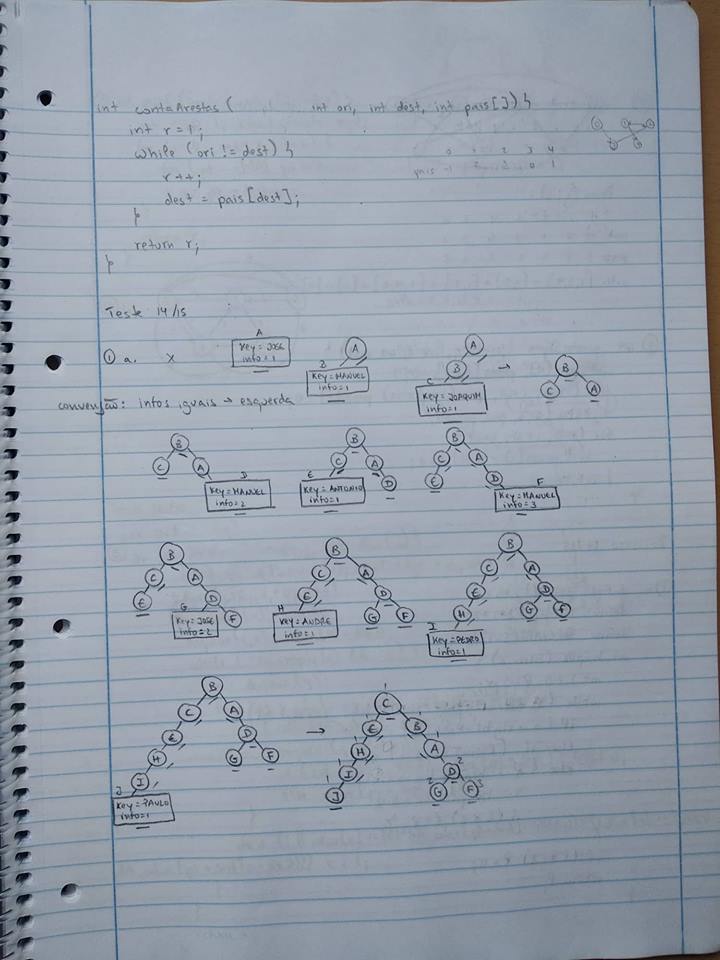 int contaArestas ( int ori, int dest, int pais[]) {
int r = 1;
while (ori != dest) {
r++;
dest = pais[dest];
}
return r;
}
0 1 2 3 4
pais -1 2 0 1
Teste 14/15
① a. X
A
Key = JOSÉ
info = 1
A
B
Key = MANUEL
info = 1
A
B
C
Key = JOAQUIM
info = 1
→
B
C A
convenção: infos iguais → esquerda
B
C A
D
Key = MANUEL
info = 2
B
C A
E D
Key = ANTONIO
info = 1
B
C A
E D
F
Key = MANUEL
info = 3
B
C A
E D
G F
Key = JOSÉ
info = 2
B
C A
E D
H G F
Key = ANDRÉ
info = 1
B
C A
E D
H G F
I
Key = PEDRO
info = 1
B
C A
E D
H G F
I
J
Key = PAULO
info = 1
→
C
1 E B 1
1 H A 1
1 I D 2
1 J 2 G F 3